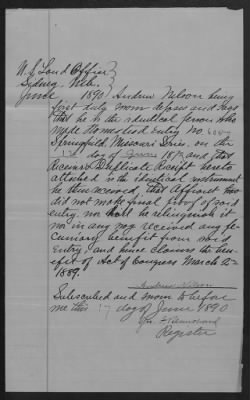 U.S. Land Office }
Sidney, Neb. }
June 1890 Andrew Nelson being
first duly sworn deposes and says
that he is the identical person who
made Homestead Entry No 600
Springfield, Missouri Dries. on the
day of 187 and that
Receivers Duplicate Receipt hereto
attached is the identical instrument
he then received, that Affiant
did not make final proof of said
entry. nor hath he relinquish it
nor in any way received any pe-
cuniary benefit from said
Entry, and hence claims the ben-
efit of Act of Congress March 2nd
1889.
Andrew Nelson
Subscribed and sworn to before
me this 17 day of June 1890
Register